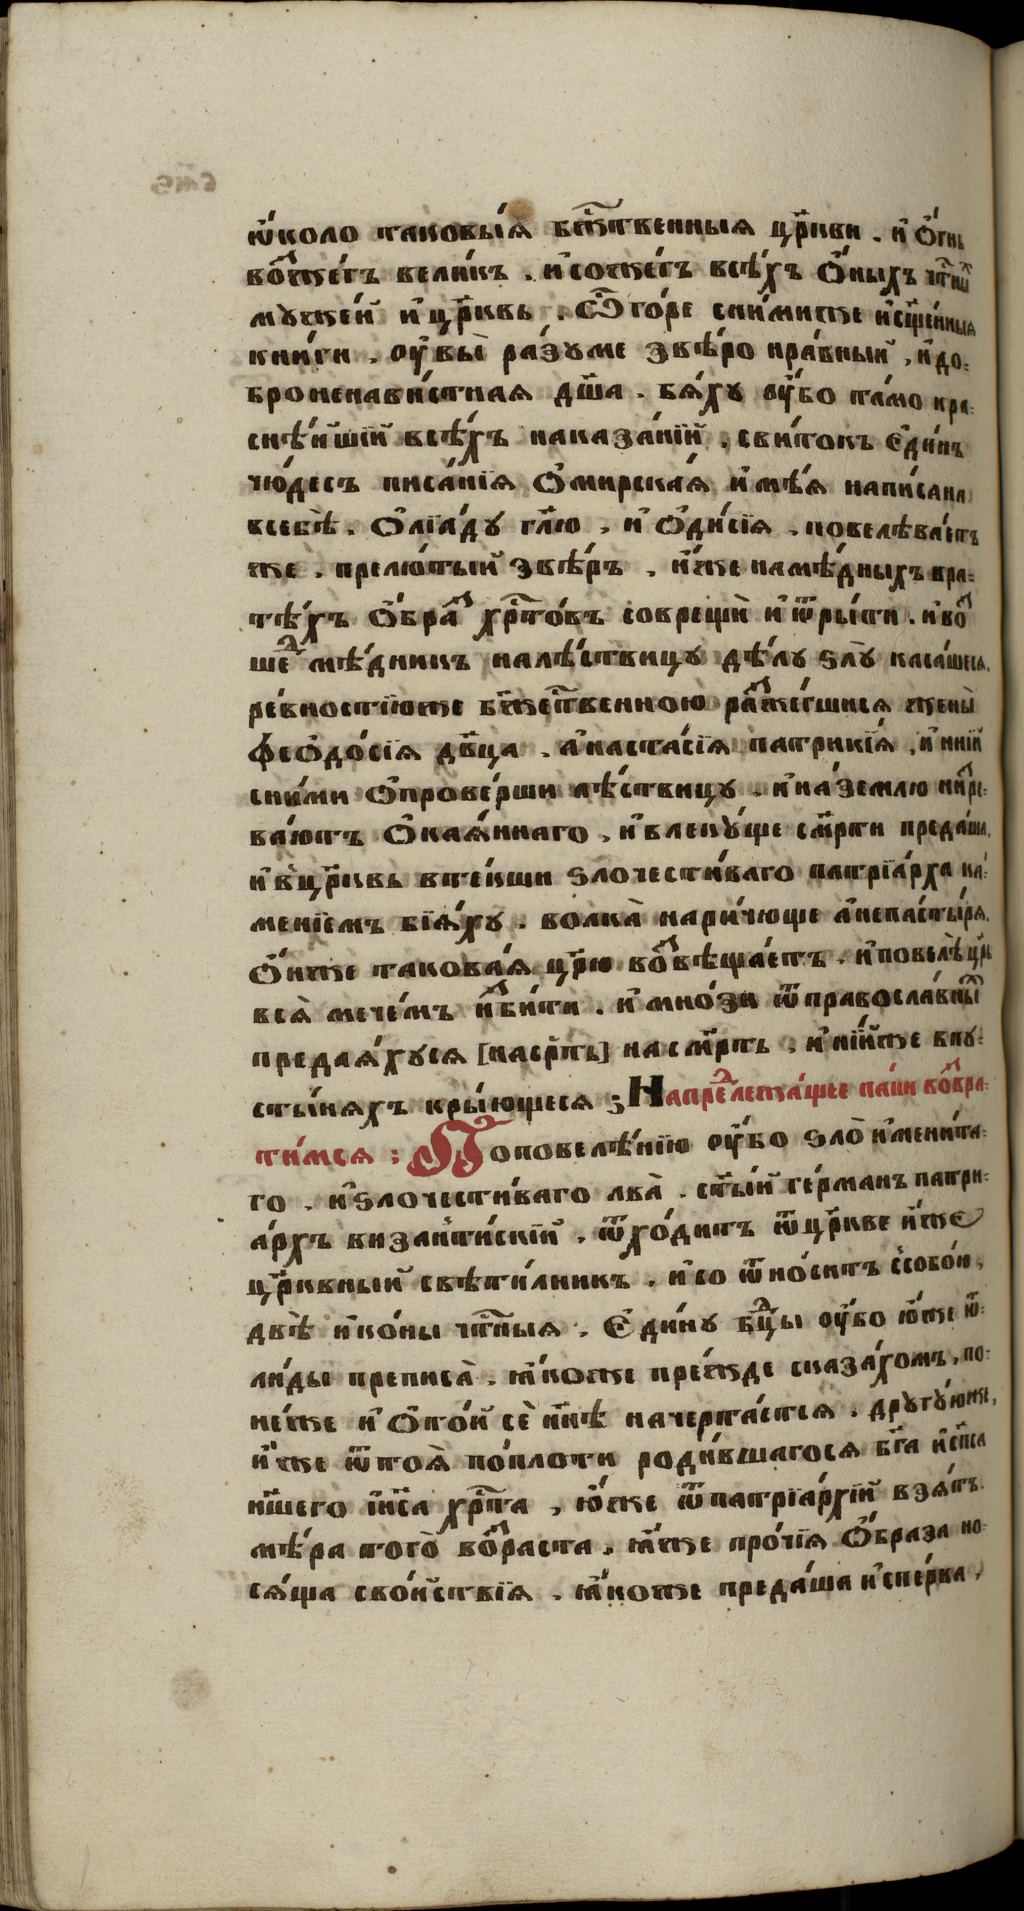 ѡ҆́коло таковы́ѧ бж҃твенныѧ цр҃кви . и҆ Ѻ҆́гнь
вꙁ҇ожже́гъ вели́къ . и҆сожже́гъ всѣ́хъ Ѻ҆́ныхъ чтⷭ҇ны
муже́й и҆ цр҃ковь . Ѽго́ре сни́миже и҆сщ҃е́нныѧ
кни́ги . ᲂу҆вы̀ ра́зуме ꙁвѣ́ро нра́вный , и҆до-
броненави́стнаѧ дш҃а . бѧ́ху ᲂу҆́бо та́мо кра-
снѣ́йшїй всѣ́хъ наказа́нїй , сви́токъ є҆ди́нъ
чю́десъ писа́нїѧ Ѻ҆мирска́ѧ и҆мѣ́ѧ напи́сана
всебѣ̀ . Ѻ҆лїа́ду гл҃ю . и҆ Ѻ҆ди́сїѧ . повелѣва́етъ
же . прелю́тый ꙁвѣ́рь . и҆́же намѣ́дныхъ вра-
тѣ́хъ Ѻ҆́браⷥ хрⷭ҇то́въ соврещѝ и҆ ѿры́ти . и҆воⷥ
шеⷣ мѣ́дникъ налѣ́ствицу дѣ́лу ѕлу̀ каса́шесѧ .
ре́вностїюже бж҃е́ственною раⷥже́гшисѧ жены̀
феѻдо́сїѧ дв҃ца . а҆наста́сїѧ патрики́ѧ , и҆ и҆ні́й
сни́ми Ѻ҆прове́рши лѣ́ствицу . и҆на́землю ниⷥре-
ва́ютъ Ѻ҆каѧ́ннаго , и҆влеку́ще сме́рти преда́ша .
и҆в̾цр҃ковь вте́кши ѕлочести́ваго патрїа́рха ка-
ме́нїемъ бїѧ́ху . волка̀ нари́чюще а҆непа́стырѧ .
Ѻ҆́ниже такова́ѧ цр҃ю воⷥвѣща́етъ . и҆повелѣ̀ цр҃ь
всѧ̀ мече́мъ и҆ⷥби́ти . и҆ мно́зи ѿправосла́вныⷯ
предаѧ́хусѧ [насрⷨть] насмр҃ть , и҆ ні́иже впу-
сты́нѧхъ кры́ющесѧ ; Напреⷣлежа́щее па́ки воⷥвра-
ти́мсѧ : Поповелѣ́нїю ᲂу҆́бо ѕло̀ и҆мени́та-
го . и҆ ѕлочести́ваго лва̀ . ст҃ы́й ге́рманъ патри-
а́рхъ византі́йскїй . ѿхо́дитъ ѿцр҃кве и҆́же
цр҃ко́вный свѣти́лникъ . и҆со ѿно́ситъ ссобо́ю ,
двѣ̀ и҆ко́ны чтⷭ҇ныѧ . Є҆ди́ну бцⷣы ᲂу҆́бо ю҆́же ѿ-
ли́ды преписа̀ . ꙗ҆́коже пре́жде сказа́хомъ , по-
не́же и҆ Ѻ҆то́й сѐ нн҃ѣ наче́ртаетсѧ . другу́юже ,
и҆́же ѿтоѧ̀ по́плоти роди́вшагосѧ бг҃а и҆сп҃са
нш҃его і҆и҃са хрⷭ҇та , ю҆́же ѿпатрїа́рхїй взѧ́тъ .
мѣ́ра того̀ воⷥраста . ꙗ҆́же про́чїѧ Ѻ҆́браза но-
сѧ́ща сво́йствїѧ . ꙗ҆́коже преда́ша и҆спе́рва ,